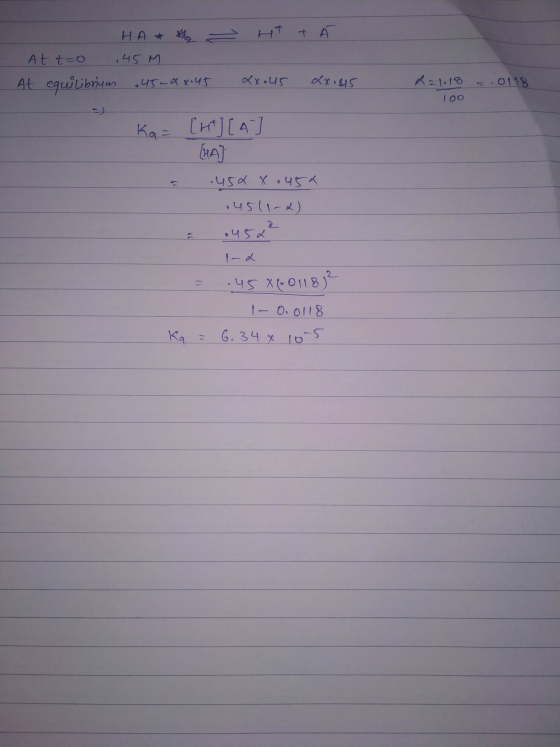 HA + ⇌ H⁺ + A⁻
At t=0 .45 M
At equilibrium .45-αx.45 αx.45 αx.45 α = 1.18/100 = .0118
=>
Ka = [H⁺][A⁻]
[HA]
= .45α x .45α
.45(1-α)
= .45α²
1-α
= .45 x (.0118)²
1 - 0.0118
Ka = 6.34 x 10⁻⁵